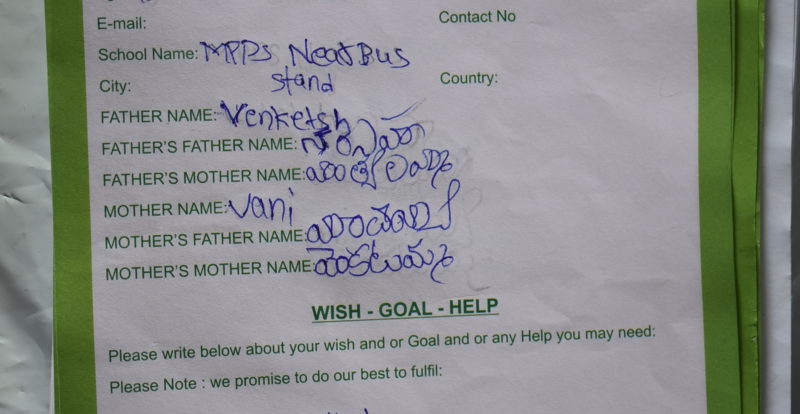 E-mail:
Contact No
School Name: MPPS Near Bus
stand
City:
Country:
FATHER NAME: Venketsh
FATHER'S FATHER NAME:
FATHER'S MOTHER NAME:
MOTHER NAME: Vani
MOTHER'S FATHER NAME:
MOTHER'S MOTHER NAME: వెంకటమ్మ
WISH - GOAL - HELP
Please write below about your wish and or Goal and or any Help you may need:
Please Note : we promise to do our best to fulfil: